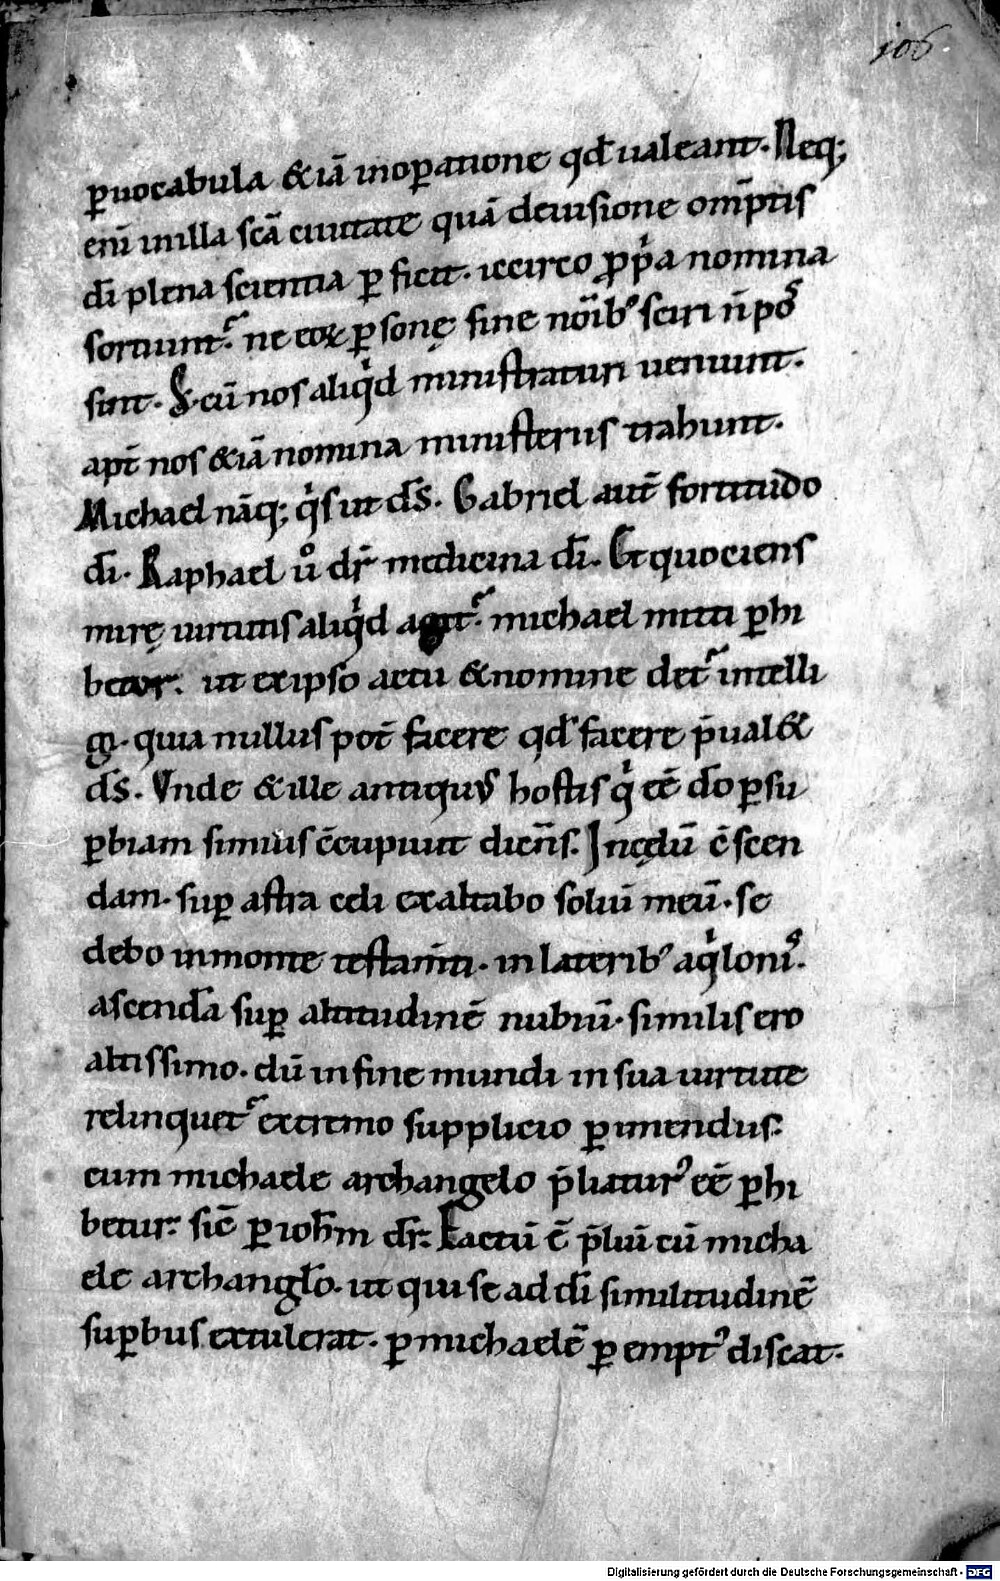 106
ꝑuocabula &iā inoꝑatione qđ ualeant. Neq;
enī inilla scā ciuitate quā deuisione omīptis
dī plena scientia ꝑficit. iccirco ꝓpͥa nomina
sortiunt᷑. ne eoꝝ ꝑsonę sine noīibꝰ sciri n̄ pos
sint. S; cū nos aliqͥd ministraturi ueniunt.
apđ nos &iā nomina ministeriis trahunt.
Michael nāq; qͥs ut dś. Gabriel aut̄ fortitudo
dī. Raphael uͦ dr̄ medicina dī. Et quociens
mirę uirtutis aliqͥd agit᷑. michael mitti ꝑhi
betur. ut exipso actu &nomine det᷑ intelli
gi. quia nullus pot̄ facere qđ facere p̄ual&
dś. Vnde &ille antiquus hostis qͥ eē dō ꝑsu
ꝑbiam similis c̄cupiuit dicēns. Incędū c̄scen
dam. suꝑ astra celi exaltabo soliū meū. se
debo inmonte testam̄ti. in lateribꝰ aqͥlonis.
ascendā suꝑ altitudinē nubiū. similis ero
altissimo. dū infine mundi insua uirtute
relinquet᷑ extremo supplicio ꝑimendus.
cum michaele archangelo p̄liaturꝰ eē ꝑhi
betur. sic̄ ꝑ ioħm dr̄. Factū ē p̄liū cū micha
ele archanglo. ut qui se ad dī similitudinē
suꝑbus extulerat. ꝑmichaelē ꝑemptꝰ discat.
Digitalisierung gefördert durch die Deutsche Forschungsgemeinschaft - DFG